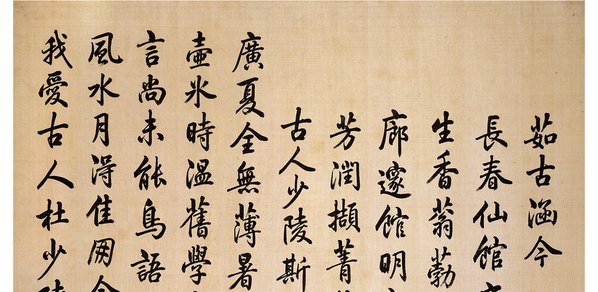 茹古涵今
長春仙館
生香蓊勃
廊邃館明
芳潤擷菁
古人少陵斯
廣夏全無薄暑
壺氷時温舊學
言尚未能鳥語
風水月淂佳
我愛古人杜少陵